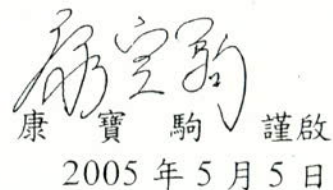 康寶駒
康寶駒 謹啟
2005年5月5日